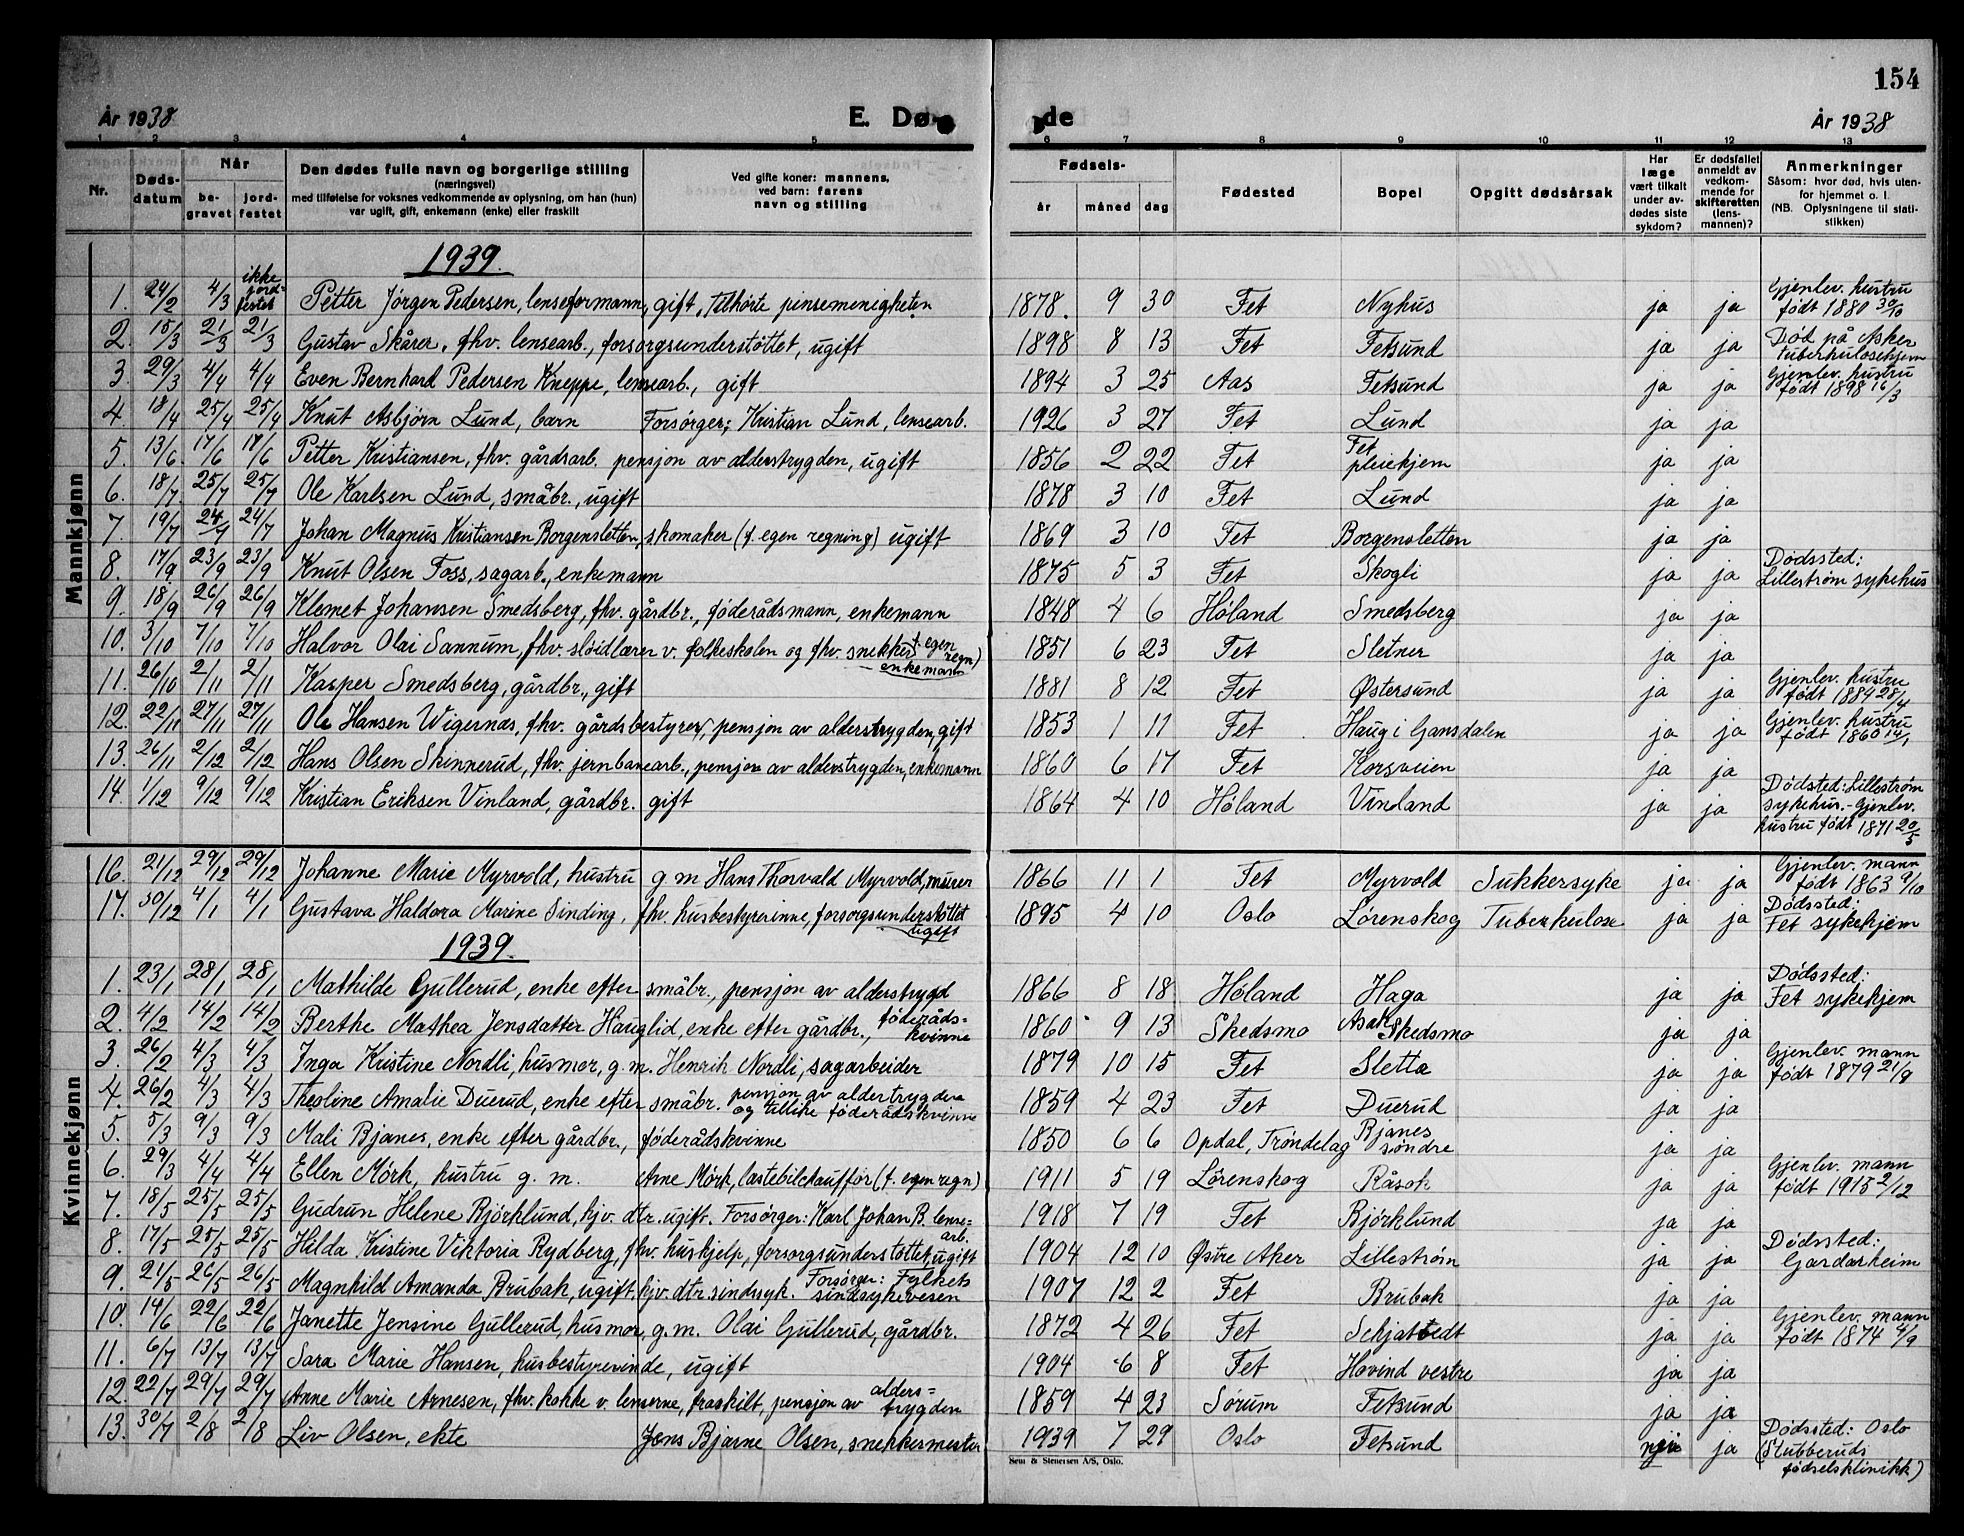 154
År 1938 E. Døde År 1938
1 2 3 4 5 6 7 8 9 10 11 12 13
Nr. Dødsdatum Når begravet jordfestet Den dødes fulle navn og borgerlige stilling (næringsvei) med tilføielse for voksnes vedkommende av oplysning, om han (hun) var ugift, gift, enkemann (enke) eller fraskilt Ved gifte koner: mannens, ved barn: farens navn og stilling Fødsels- år måned dag Fødested Bopel Opgitt dødsårsak Har læge vært tilkalt under avdødes siste sykdom? Er dødsfallet anmeldt av vedkommende for skifteretten (lensmannen)? Anmerkninger Såsom: hvor død, hvis utenfor hjemmet o. l. (NB. Oplysningene til statistikken)
Mannkjønn
1939.
1. 24/2 4/3 ikke jordfestet Petter Jörgen Pedersen, lenseformann, gift, tilhørte pinsemenigheten 1878. 9 30 Fet Nyhus ja ja Gjenlev. hustru født 1880 30/10
2. 15/3 21/3 21/3 Gustav Skårer, fhv. lensearb., forsorgsunderstøttet, ugift 1898 8 13 Fet Fetsund ja ja Død på Asker tuberkulosehjem
3. 29/3 4/4 4/4 Even Bernhard Pedersen Kneppe, lensearb., gift 1894 3 25 Aas Fetsund ja ja Gjenlev. hustru født 1898 16/3
4. 18/4 25/4 25/4 Knut Asbjørn Lund, barn Forsörger; Kristian Lund, lensearb. 1926 3 27 Fet Lund ja ja
5. 13/6 17/6 17/6 Petter Kristiansen, fhv. gårdsarb. pensjon av alderstrygden, ugift 1856 2 22 Fet Fet pleiehjem ja ja
6. 18/7 25/7 25/7 Ole Karlsen Lund, småbr., ugift 1878 3 10 Fet Lund ja ja
7. 19/7 24/7 24/7 Johan Magnus Kristiansen Borgensletten, skomaker (f. egen regning) ugift 1869 3 10 Fet Borgensletten ja ja
8. 17/9 23/9 23/9 Knut Olsen Foss, sagarb., enkemann 1875 5 3 Fet Skogli ja ja Dødssted: Lillestrøm sykehus
9. 18/9 26/9 26/9 Klemet Johansen Smedsberg, fhv. gårdbr., føderådsmann, enkemann 1848 4 6 Høland Smedsberg ja ja
10. 3/10 7/10 7/10 Halvor Olai Sannum, fhv. sløidlærer v. folkeskolen og fhv. snekker f. egen regn) enkemann 1851 6 23 Fet Sletner ja ja
11. 26/10 2/11 2/11 Kasper Smedsberg, gårdbr., gift 1881 8 12 Fet Østersund ja ja Gjenlev. hustru født 1884 28/4
12. 22/11 27/11 27/11 Ole Hansen Wigernæs, fhv. gårdsbestyrer, pensjon av alderstrygden, gift 1853 1 11 Fet Haug i Gansdalen ja ja Gjenlev. hustru født 1860 14/1
13. 26/11 2/12 2/12 Hans Olsen Skinnerud, fhv. jernbanearb., pensjon av alderstrygden, enkemann 1860 6 17 Fet Korsveien ja ja
14. 1/12 9/12 9/12 Kristian Eriksen Vinland, gårdbr. gift 1864 4 10 Høland Vinland ja ja Dødsted: Lillestrøm sykehus. - Gjenlev. hustru født 1871 20/5
Kvinnekjønn
16. 21/12 29/12 29/12 Johanne Marie Myrvold, hustru g m Hans Thorvald Myrvold, murer 1866 11 1 Fet Myrvold Sukkersyke ja ja Gjenlev. mann født 1863 9/10
17. 30/12 4/1 4/1 Gustava Haldora Marine Sinding, fhv. husbestyrerinne, forsorgsunderstøttet ugift 1895 4 10 Oslo Lørenskog Tuberkulose ja ja Dødssted: Fet sykehjem
1939.
1. 23/1 28/1 28/1 Mathilde Gullerud, enke efter småbr., pensjon av alderstrygd 1866 8 18 Høland Haga ja ja Dødssted: Fet sykehjem
2. 4/2 14/2 14/2 Berthe Mathea Jensdatter Hauglid, enke efter gårdbr., føderådskvinne 1860 9 13 Skedsmo Asak Skedsmo ja ja
3. 26/2 4/3 4/3 Inga Kristine Nordli, husmor, g. m. Henrik Nordli, sagarbeider 1879 10 15 Fet Sletta ja ja Gjenlev. mann født 1879 21/9
4. 26/2 4/3 4/3 Theoline Amalie Duerud, enke efter småbr. pensjon av aldertrygden og tillike føderådskvinne 1859 4 23 Fet Duerud ja ja
5. 5/3 9/3 9/3 Mali Bjanes, enke efter gårdbr., føderådskvinne 1850 6 6 Opdal, Trøndelag Bjanes søndre ja ja
6. 29/3 4/4 4/4 Ellen Mörk, hustru g. m. Arne Mörk, lastebilchauffør (f. egen regn) 1911 5 19 Lørenskog Råsok ja ja Gjenlev. mann født 1915 2/12
7. 18/5 25/5 25/5 Gudrun Helene Björklund, hjv. dtr. ugift. Forsörger: Karl Johan B. lensearb. 1918 7 19 Fet Björklund ja ja
8. 17/5 25/5 25/5 Hilda Kristine Viktoria Rydberg, fhv. hushjelp, forsorgsunderstøttet, ugift 1904 12 10 Østre Aker Lillestrøm ja ja Dødssted: Gardarheim
9. 21/5 26/5 26/5 Magnhild Amanda Brubak, ugift, hjv. dtr. sindssyk. Forsörger: Fylkets sindsykevesen 1907 12 2 Fet Brubak ja ja
10. 14/6 22/6 22/6 Janette Jensine Gullerud, husmor, g. m. Olai Gullerud, gårdbr. 1872 4 26 Fet Schjatvedt ja ja Gjenlev. mann født 1874 4/9
11. 6/7 13/7 13/7 Sara Marie Hansen, husbestyrerinde, ugift 1904 6 8 Fet Hovind vestre ja ja
12. 22/7 29/7 29/7 Anne Marie Arnesen, fhv. kokke v. lensene, fraskilt, pensjon av alderstrygden 1859 4 23 Sørum Fetsund ja ja
13. 30/7 2/8 2/8 Liv Olsen, ekte Jens Bjarne Olsen, snekkermester 1939 7 29 Oslo Fetsund nei ja Dødssted: Oslo (Stubberuds fødselsklinikk)
Sem & Stenersen A/S, Oslo.